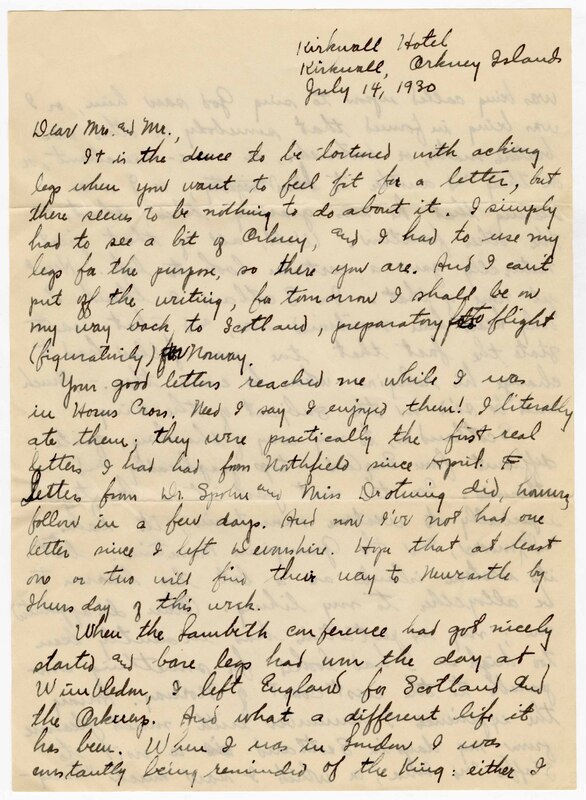 Kirkwall Hotel
Kirkwall, Orkney Islands
July 14, 1930
Dear Mrs. and Mr.,
It is the deuce to be tortured with aching
legs when you want to feel fit for a letter, but
there seems to be nothing to do about it. I simply
had to see a bit of Orkney, and I had to use my
legs for the purpose, so there you are. And I can't
put off the writing, for tomorrow I shall be on
my way back to Scotland, preparatory to flight
(figuratively) for Norway.
Your good letters reached me while I was
in Horns Cross. Need I say I enjoyed them! I literally
ate them; they were practically the first real
letters I had had from Northfield since April.
Letters from Dr. Spohn and Miss Drotning did, however,
follow in a few days. And now I've not had one
letter since I left Devonshire. Hope that at least
one or two will find their way to Newcastle by
Thursday of this week.
When the Lambeth conference had got nicely
started and bare legs had won the day at
Wimbledon, I left England for Scotland and
the Orkneys. And what a different life it
has been. When I was in London I was
constantly being reminded of the King: either I